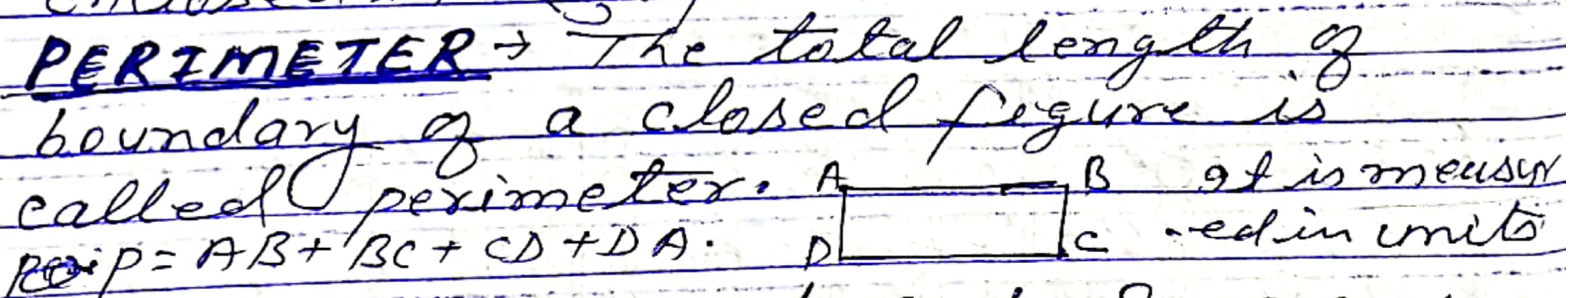 PERIMETER → The total length of
boundary of a closed figure is
called perimeter. A B It is measur
P = AB + BC + CD + DA. D C -ed in units